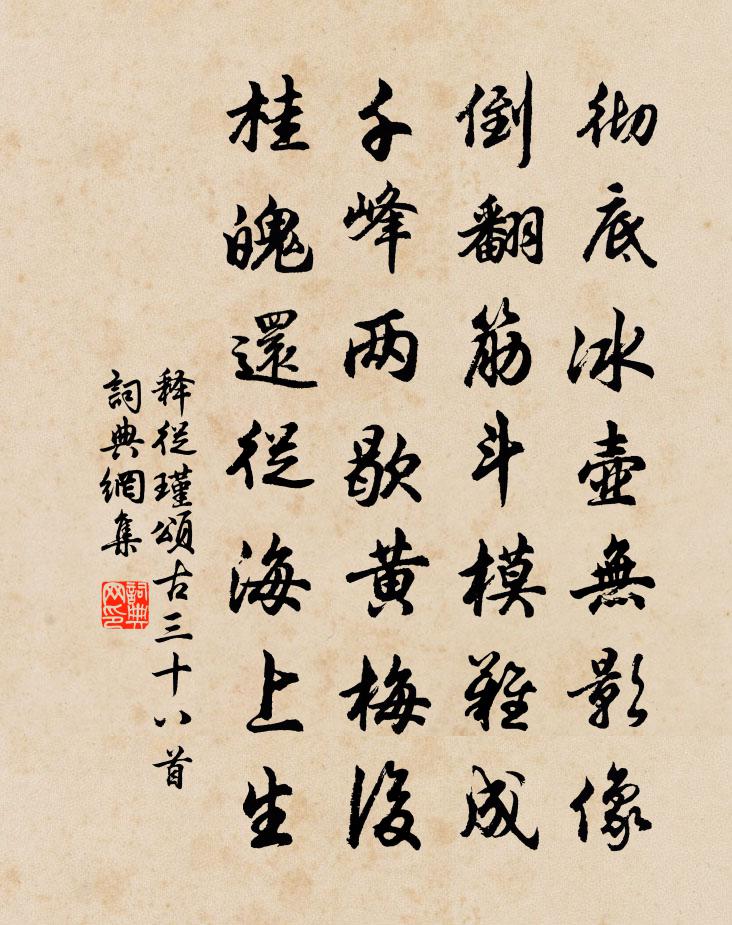 彻底冰壺無影像
倒翻筋斗模難成
千峰两歇黄梅後
桂魄還從海上生
释從瑾頌古三十八首
詞典網集
詞典网印